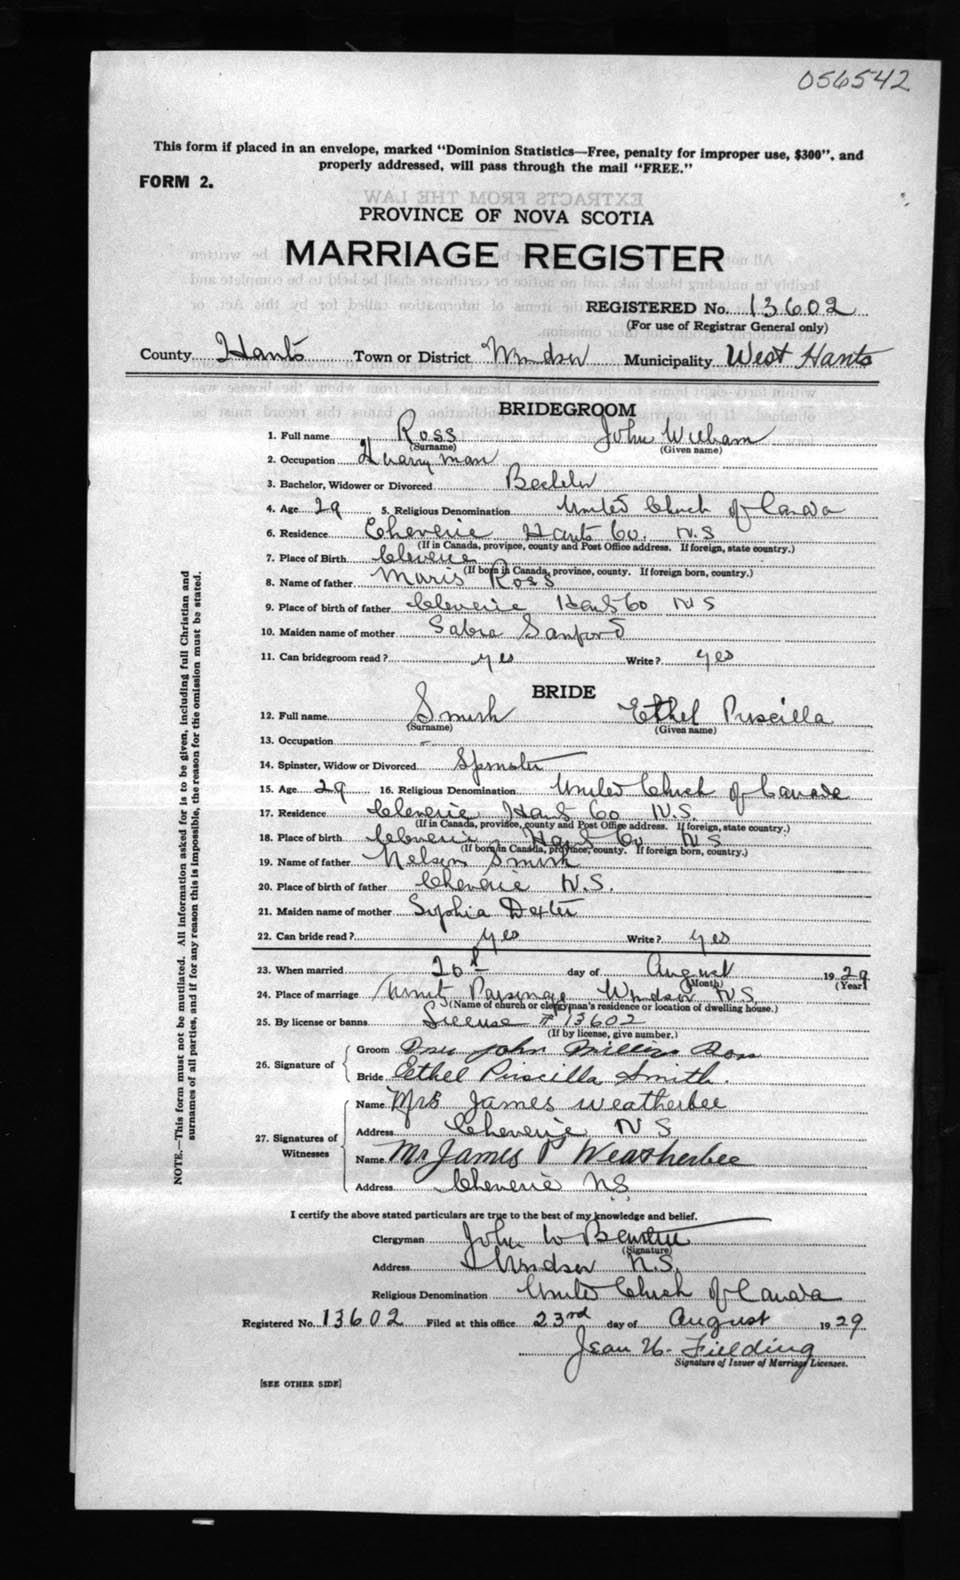 056542
This form if placed in an envelope, marked "Dominion Statistics—Free, penalty for improper use, $300", and
properly addressed, will pass through the mail "FREE."
FORM 2.
EXTRACTS FROM THE LAW
PROVINCE OF NOVA SCOTIA
MARRIAGE REGISTER
REGISTERED No. 13602
(For use of Registrar General only)
County Hants Town or District Windsor Municipality West Hants
BRIDEGROOM
1. Full name Ross John William
(Surname) (Given name)
2. Occupation Quarry man
3. Bachelor, Widower or Divorced Bachelor
4. Age 29 5. Religious Denomination United Church of Canada
6. Residence Cheverie Hants Co. N.S
(If in Canada, province, county and Post Office address. If foreign, state country.)
7. Place of Birth Cheverie
(If born in Canada, province, county. If foreign born, country.)
8. Name of father Ross
9. Place of birth of father Cheverie Hants Co N S
10. Maiden name of mother Sabra Sanford
11. Can bridegroom read? yes Write? yes
BRIDE
12. Full name Smith Ethel Priscilla
(Surname) (Given name)
13. Occupation –
14. Spinster, Widow or Divorced Spinster
15. Age 29 16. Religious Denomination United Church of Canada
17. Residence Cheverie Hants Co N.S.
(If in Canada, province, county and Post Office address. If foreign, state country.)
18. Place of birth Cheverie Hants Co N S
(If born in Canada, province, county. If foreign born, country.)
19. Name of father Nelson Smith
20. Place of birth of father Cheverie N.S.
21. Maiden name of mother Sophia Dexter
22. Can bride read? yes Write? yes
23. When married 20th day of August 1929
(Month) (Year)
24. Place of marriage Parsonage Windsor N.S.
(Name of church or clergyman's residence or location of dwelling house.)
25. By license or banns License # 13602
(If by license, give number.)
26. Signature of
Groom John Ross
Bride Ethel Priscilla Smith.
27. Signatures of Witnesses
Name Mrs James Weatherbee
Address Cheverie N S
Name Mr James P Weatherbee
Address Cheverie N.S.
I certify the above stated particulars are true to the best of my knowledge and belief.
Clergyman John W
(Signature)
Address Windsor N.S.
Religious Denomination United Church of Canada
Registered No. 13602 Filed at this office 23rd day of August 1929
Jean Fielding
Signature of Issuer of Marriage Licenses.
[SEE OTHER SIDE]
NOTE.—This form must not be mutilated. All information asked for is to be given, including full Christian and
surnames of all parties, and if for any reason this is impossible, the reason for the omission must be stated.